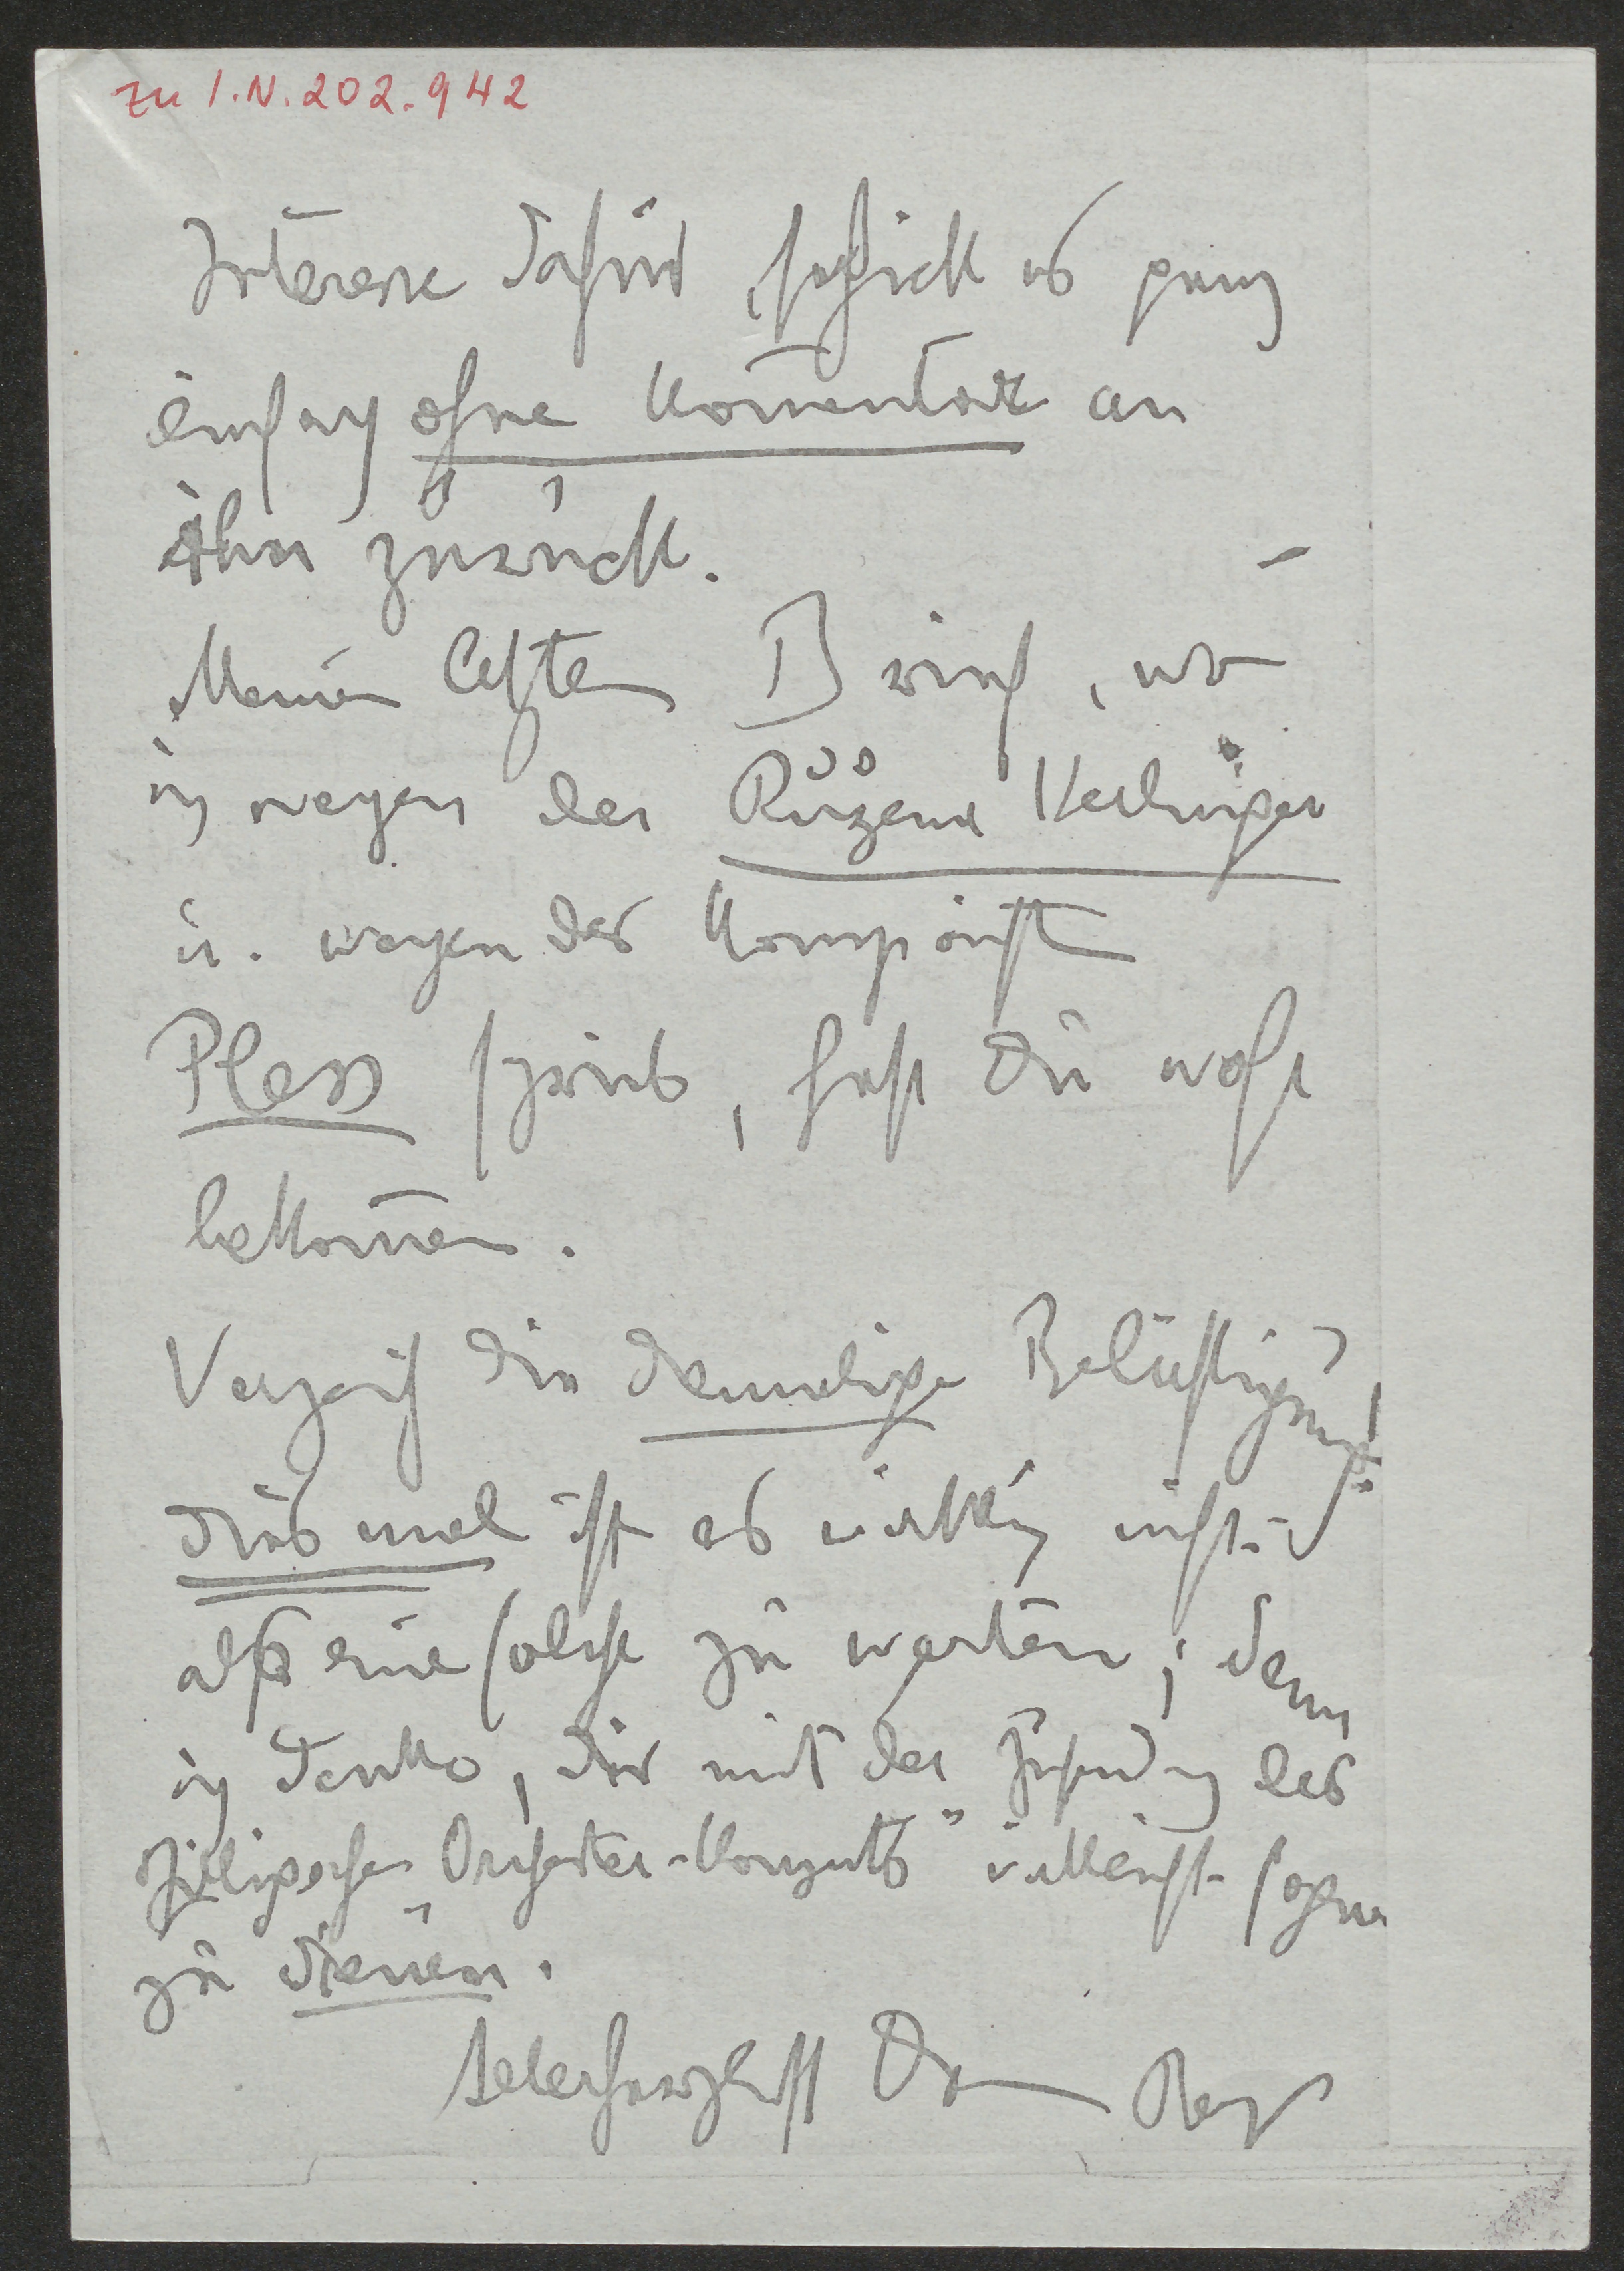 zu I.N. 202.942
Interesse dafür, so schick es ganz
einfach ohne Kommentar an
ihn zurück.
Meinen letzten Brief, wo
ich wegen der Růžena Herlinger
u. wegen des Komponisten
Pless schrieb, hast Du wohl
bekommen.
Verzeih die demalige Belästigung!
Dies mal ist es wirklich nicht
als eine solche zu werten; denn
ich denke, Dir mit der Zusendung des
"Orchester-Konzerts" vielleicht sogar
zu dienen.
Allerherzlichst Dein